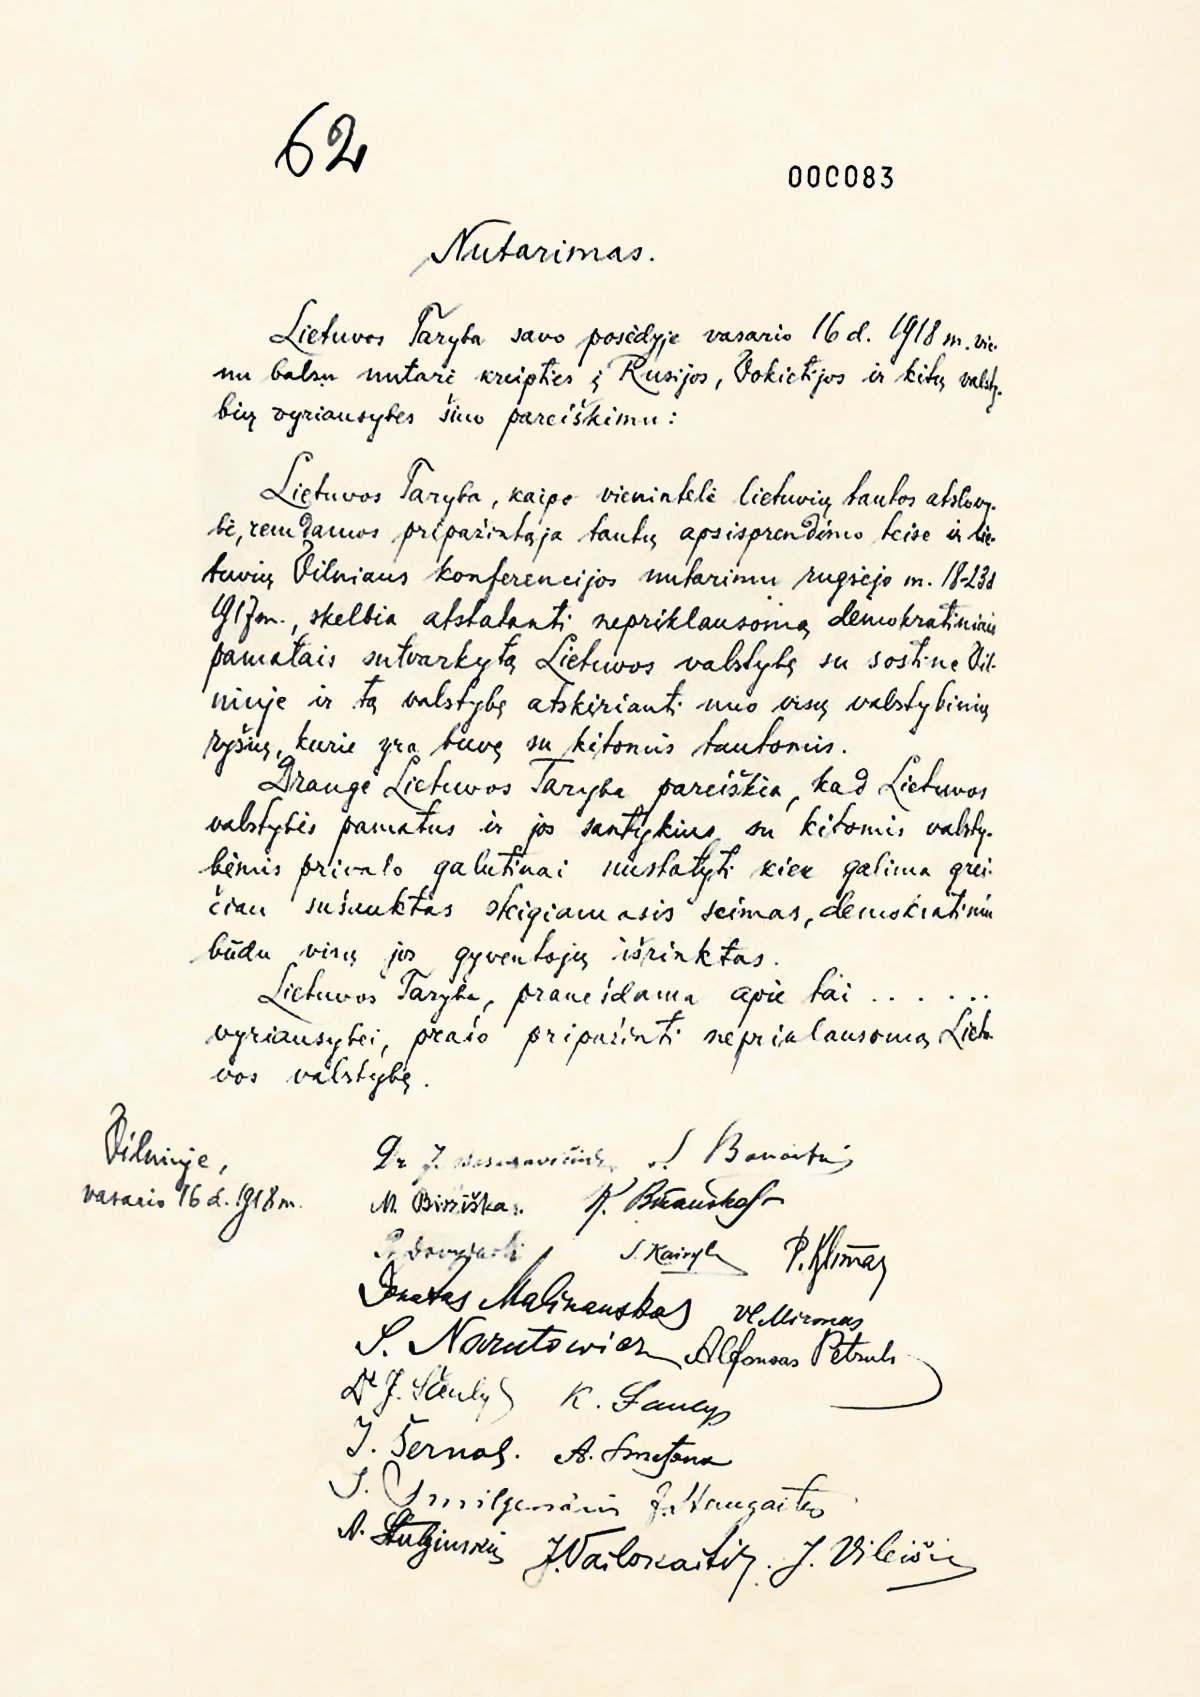 62
000083
Nutarimas.
Lietuvos Taryba savo posėdyje vasario 16 d. 1918 m. vie-
nu balsu nutarė kreipties į Rusijos, Vokietijos ir kitų valsty-
bių vyriausybes šiuo pareiškimu:
Lietuvos Taryba, kaipo vienintelė lietuvių tautos atstovy-
bė, remdamos pripažintąja tautų apsisprendimo teise ir lie-
tuvių Vilniaus konferencijos nutarimu rugsėjo m. 18-23 d
1917 m., skelbia atstatanti nepriklausomą demokratiniais
pamatais sutvarkytą Lietuvos valstybę su sostine Vil-
niuje ir tą valstybę atskirianti nuo visų valstybinių
ryšių, kurie yra buvę su kitomis tautomis.
Drauge Lietuvos Taryba pareiškia, kad Lietuvos
valstybės pamatus ir jos santykius su kitomis valsty-
bėmis privalo galutinai nustatyti kiek galima grei-
čiau sušauktas steigiamasis seimas, demokratiniu
būdu visų jos gyventojų išrinktas.
Lietuvos Taryba, pranešdama apie tai . . . . . .
vyriausybei, prašo pripažinti nepriklausomą Lietu-
vos valstybę.
Vilniuje,
vasario 16 d. 1918 m.
Dr J. Basanavičius S. Banaitis
M. Biržiška. K. Bizauskas
Pr. Dovydaitis S. Kairys P. Klimas
Donatas Malinauskas Vl. Mironas
S. Narutowicz Alfonsas Petrulis
Dr J. Šaulys K. Šaulys
J. Šernas. A. Smetona
J. Smilgevičius J. Staugaitis
A. Stulginskis J. Vailokaitis. J. Vileišis